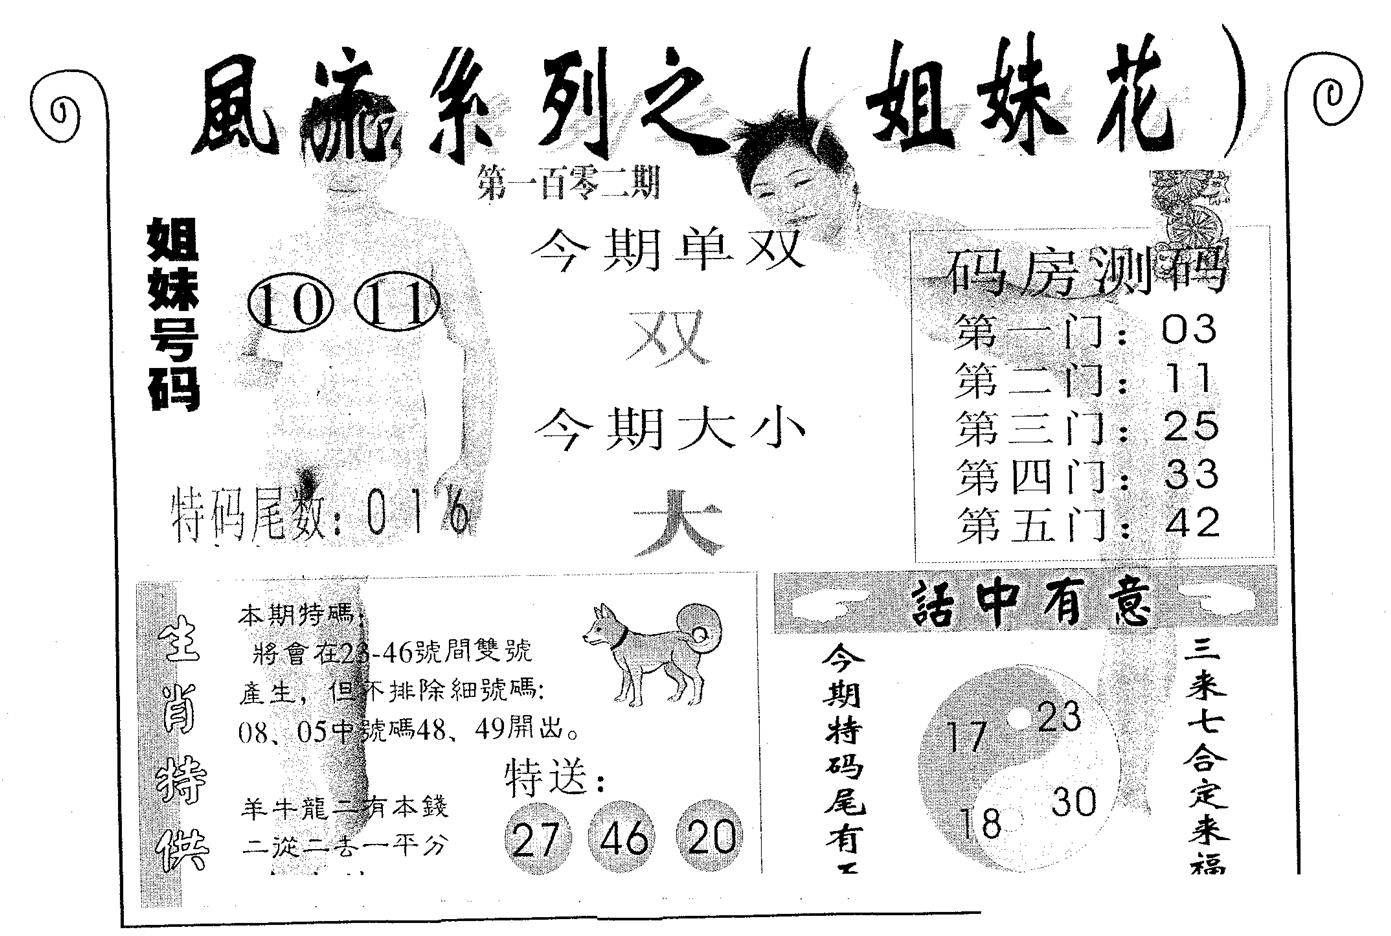 風流系列之（姐妹花）
第一百零二期
姐妹号码
10 11
特码尾数：016
今期单双
双
今期大小
大
码房测码
第一门：03
第二门：11
第三门：25
第四门：33
第五门：42
生肖特供
本期特碼：
將會在23-46號間雙號
產生，但不排除細號碼:
08、05中號碼48、49開出。
羊牛龍二有本錢
二從二去一平分
特送：
27 46 20
話中有意
今期特码尾有
17 23
18 30
三来七合定来福